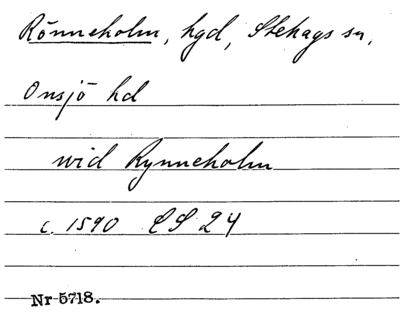 Rönneholm, hgd, Stehags sn,
Onsjö hd
wid Rynneholm
c. 1590 LS 24
Nr 5718.